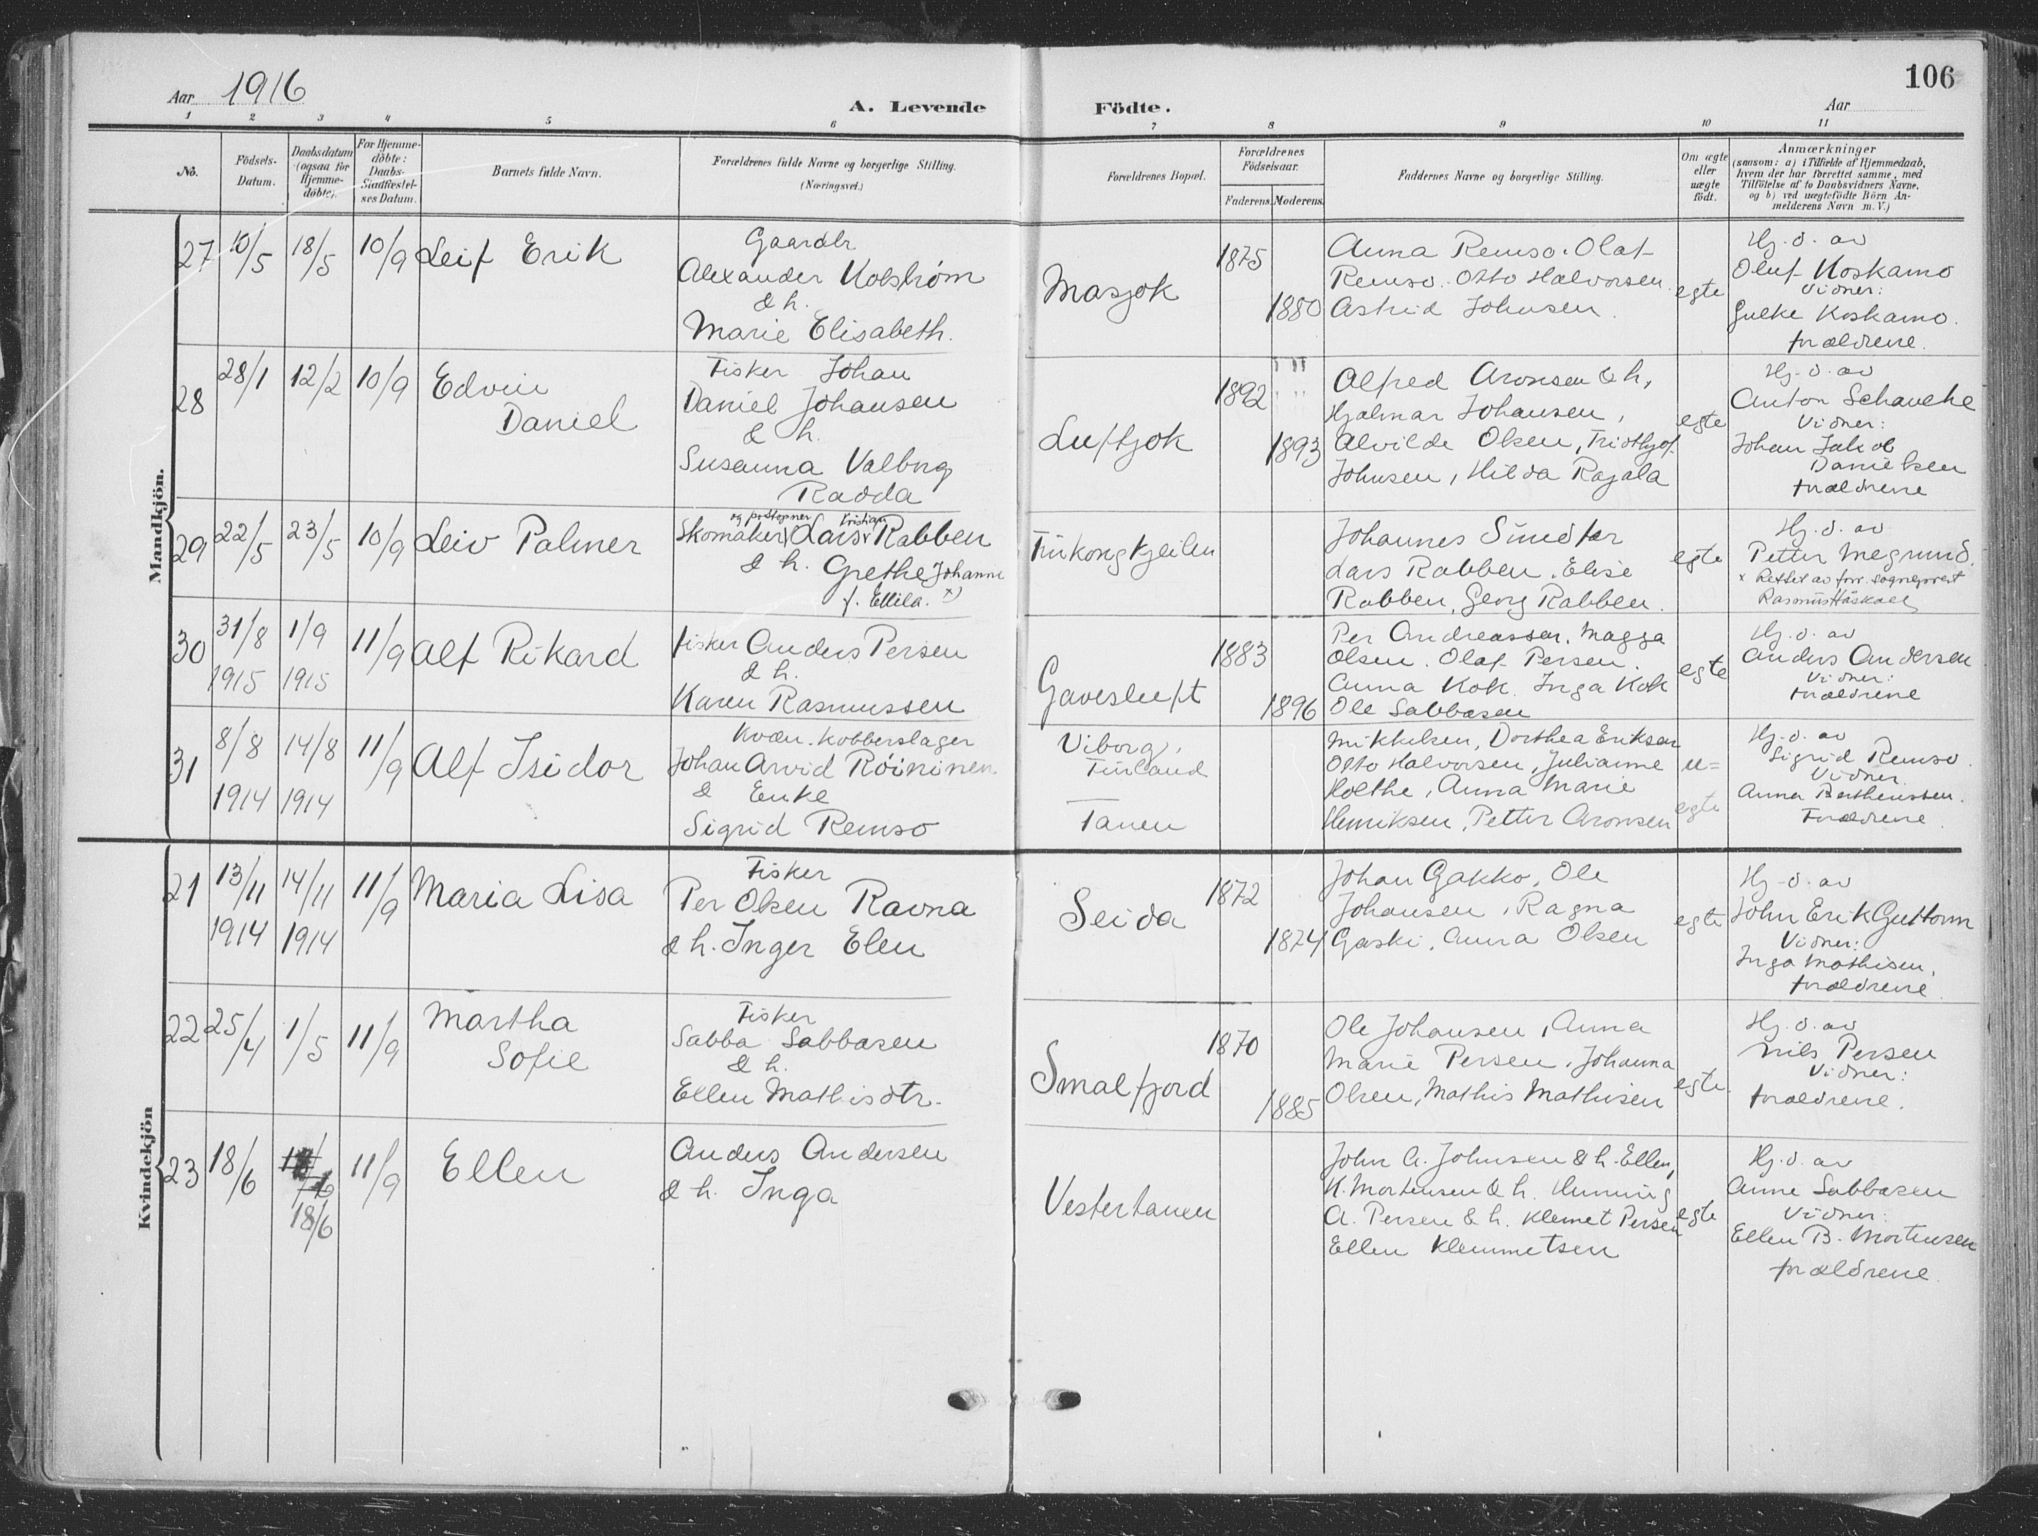 Aar 1916
A. Levende Födte.
106
Aar
1 2 3 4 5 6 7 8 9 10 11
No.
Födsels-Datum.
Daabsdatum (ogsaa for Hjemme-döbte).
For Hjemme-döbte: Daabs-Stadfæstel-ses Datum.
Barnets fulde Navn.
Forældrenes fulde Navne og borgerlige Stilling.
(Næringsvei.)
Forældrenes Bopæl.
Forældrenes Födselsaar.
Faderens. Moderens.
Faddernes Navne og borgerlige Stilling.
Om ægte eller uægte födt.
Anmærkninger
(saasom: a) i Tilfælde af Hjemmedaab, hvem der har forrettet samme, med Tilföielse af to Daabsvidners Navne, og b) ved uægtefödte Börn Anmelderens Navn m. V.)
Mandkjön.
27 10/5 18/5 10/9 Leif Erik
Gaardbr
Alexander Kolström
& h.
Marie Elisabeth.
Masjok
1875
1880
Anna Remso. Olaf
Remso. Otto Halvorsen.
Astrid Johnsen.
egte
Hj. d. av
Oluf Koskamo
Vidner:
Gulke Koskamo.
forældrene.
28 28/1 12/2 10/9 Edvin
Daniel
Fisker Johan
Daniel Johansen
& h.
Susanna Valborg
Radda
Luftjok
1892
1893
Alfred Aronsen & h,
Hjalmar Johansen,
Alvilde Olsen, Fridthjof
Johnsen, Hilda Rajala
egte
Hj. d. av
Anton Schancke
Vidner:
Johan Jakob
Danielsen
forældrene
29 22/5 23/5 10/9 Leiv Palmer
og postopner Kristian
Skomaker Lars Rabben
& h. Grethe Johanne
f. Ellila. x)
Finkongkjeilen
Johannes Sundfær
Lars Rabben. Elise
Rabben, Georg Rabben.
egte
Hj. d. av
Petter Megrund.
x Rettet av forr. sogneprest
Rasmus Håskoll
30 31/8 1/9 11/9 Alf Rikard
1915 1915
Fisker Anders Persen
& h.
Karen Rasmussen
Gavesluft
1883
1896
Per Andreassen. Magga
Olsen. Olaf Persen.
Anna Kok. Inga Kok
Ole Sabbasen
egte
Hj. d. av
Anders Andersen
Vidner:
forældrene
31 8/8 14/8 11/9 Alf Isidor
1914 1914
Kvæn. Kobberslager
Johan Arvid Röininen.
& Enke
Sigrid Remso
Viborg,
Finland
Tanen
Mikkelsen, Dorthea Eriksen
Otto Halvorsen, Julianne
Holthe, Anna Marie
Henriksen, Petter Aronsen
u=
egte
Hj. d. av
Sigrid Remso.
Vidner.
Anna Berthinssen.
Forældrene
Kvindekjön
21 13/11 14/11 11/9 Maria Lisa
1914 1914
Fisker
Per Olsen Ravna
& h. Inger Elen
Seida
1872
1874
Johan Gakko, Ole
Johansen, Ragna
Gaski, Anna Olsen
egte
Hj. d. av
John Erik Guttorm
Vidner:
Inga Mathisen,
forældrene
22 25/4 1/5 11/9 Martha
Sofie
Fisker
Sabba Sabbasen
& h.
Ellen Mathisdtr.
Smalfjord
1870
1885
Ole Johansen, Anna
Marie Persen. Johanna
Olsen, Mathis Mathisen
egte
Hj. d. av
Nils Persen
Vidner:
forældrene.
23 18/6 18/6 11/9 Ellen
Anders Andersen
& h. Inga
Vestertanen
John A. Johnsen & h. Ellen,
K. Mortensen & h. Henning
A. Persen & h. Klemet Persen
Ellen Klemmetsen
egte
Hj. d. av
Anne Sabbasen
Vidner:
Ellen B. Mortensen
forældrene